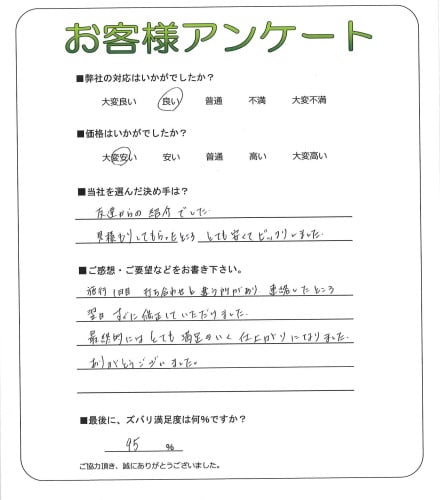 お客様アンケート
■弊社の対応はいかがでしたか?
大変良い 良い 普通 不満 大変不満
■価格はいかがでしたか?
大変安い 安い 普通 高い 大変高い
■当社を選んだ決め手は?
友達からの紹介でした。
見積もりしてもらったところ とても安くてビックリしました。
■ご感想・ご要望などをお書き下さい。
施行1日目 打ち合わせと違う所があり 連絡したところ
翌日 すぐに修正していただけました。
最終的にはとても満足のいく仕上がりになりました。
ありがとうございました。
■最後に、ズバリ満足度は何%ですか?
95 %
ご協力頂き、誠にありがとうございました。